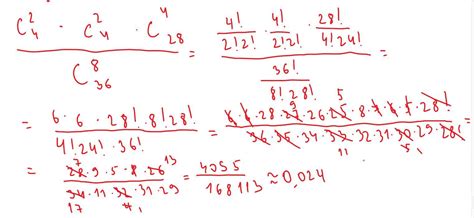 C₄² · C₄² · C₂₈⁴
C₃₆⁸
=
4!/2!2! · 4!/2!2! · 28!/4!24!
36!/8!28!
=
= 6·6·28!·8!28!/4!24!·36! = 6·6·28·27·26·25·8·7·6·5·28!/36·35·34·33·32·31·30·29·28! =
= 28·9·5·8·26/34·11·32·31·29 = 4095/168113 ≈ 0,024